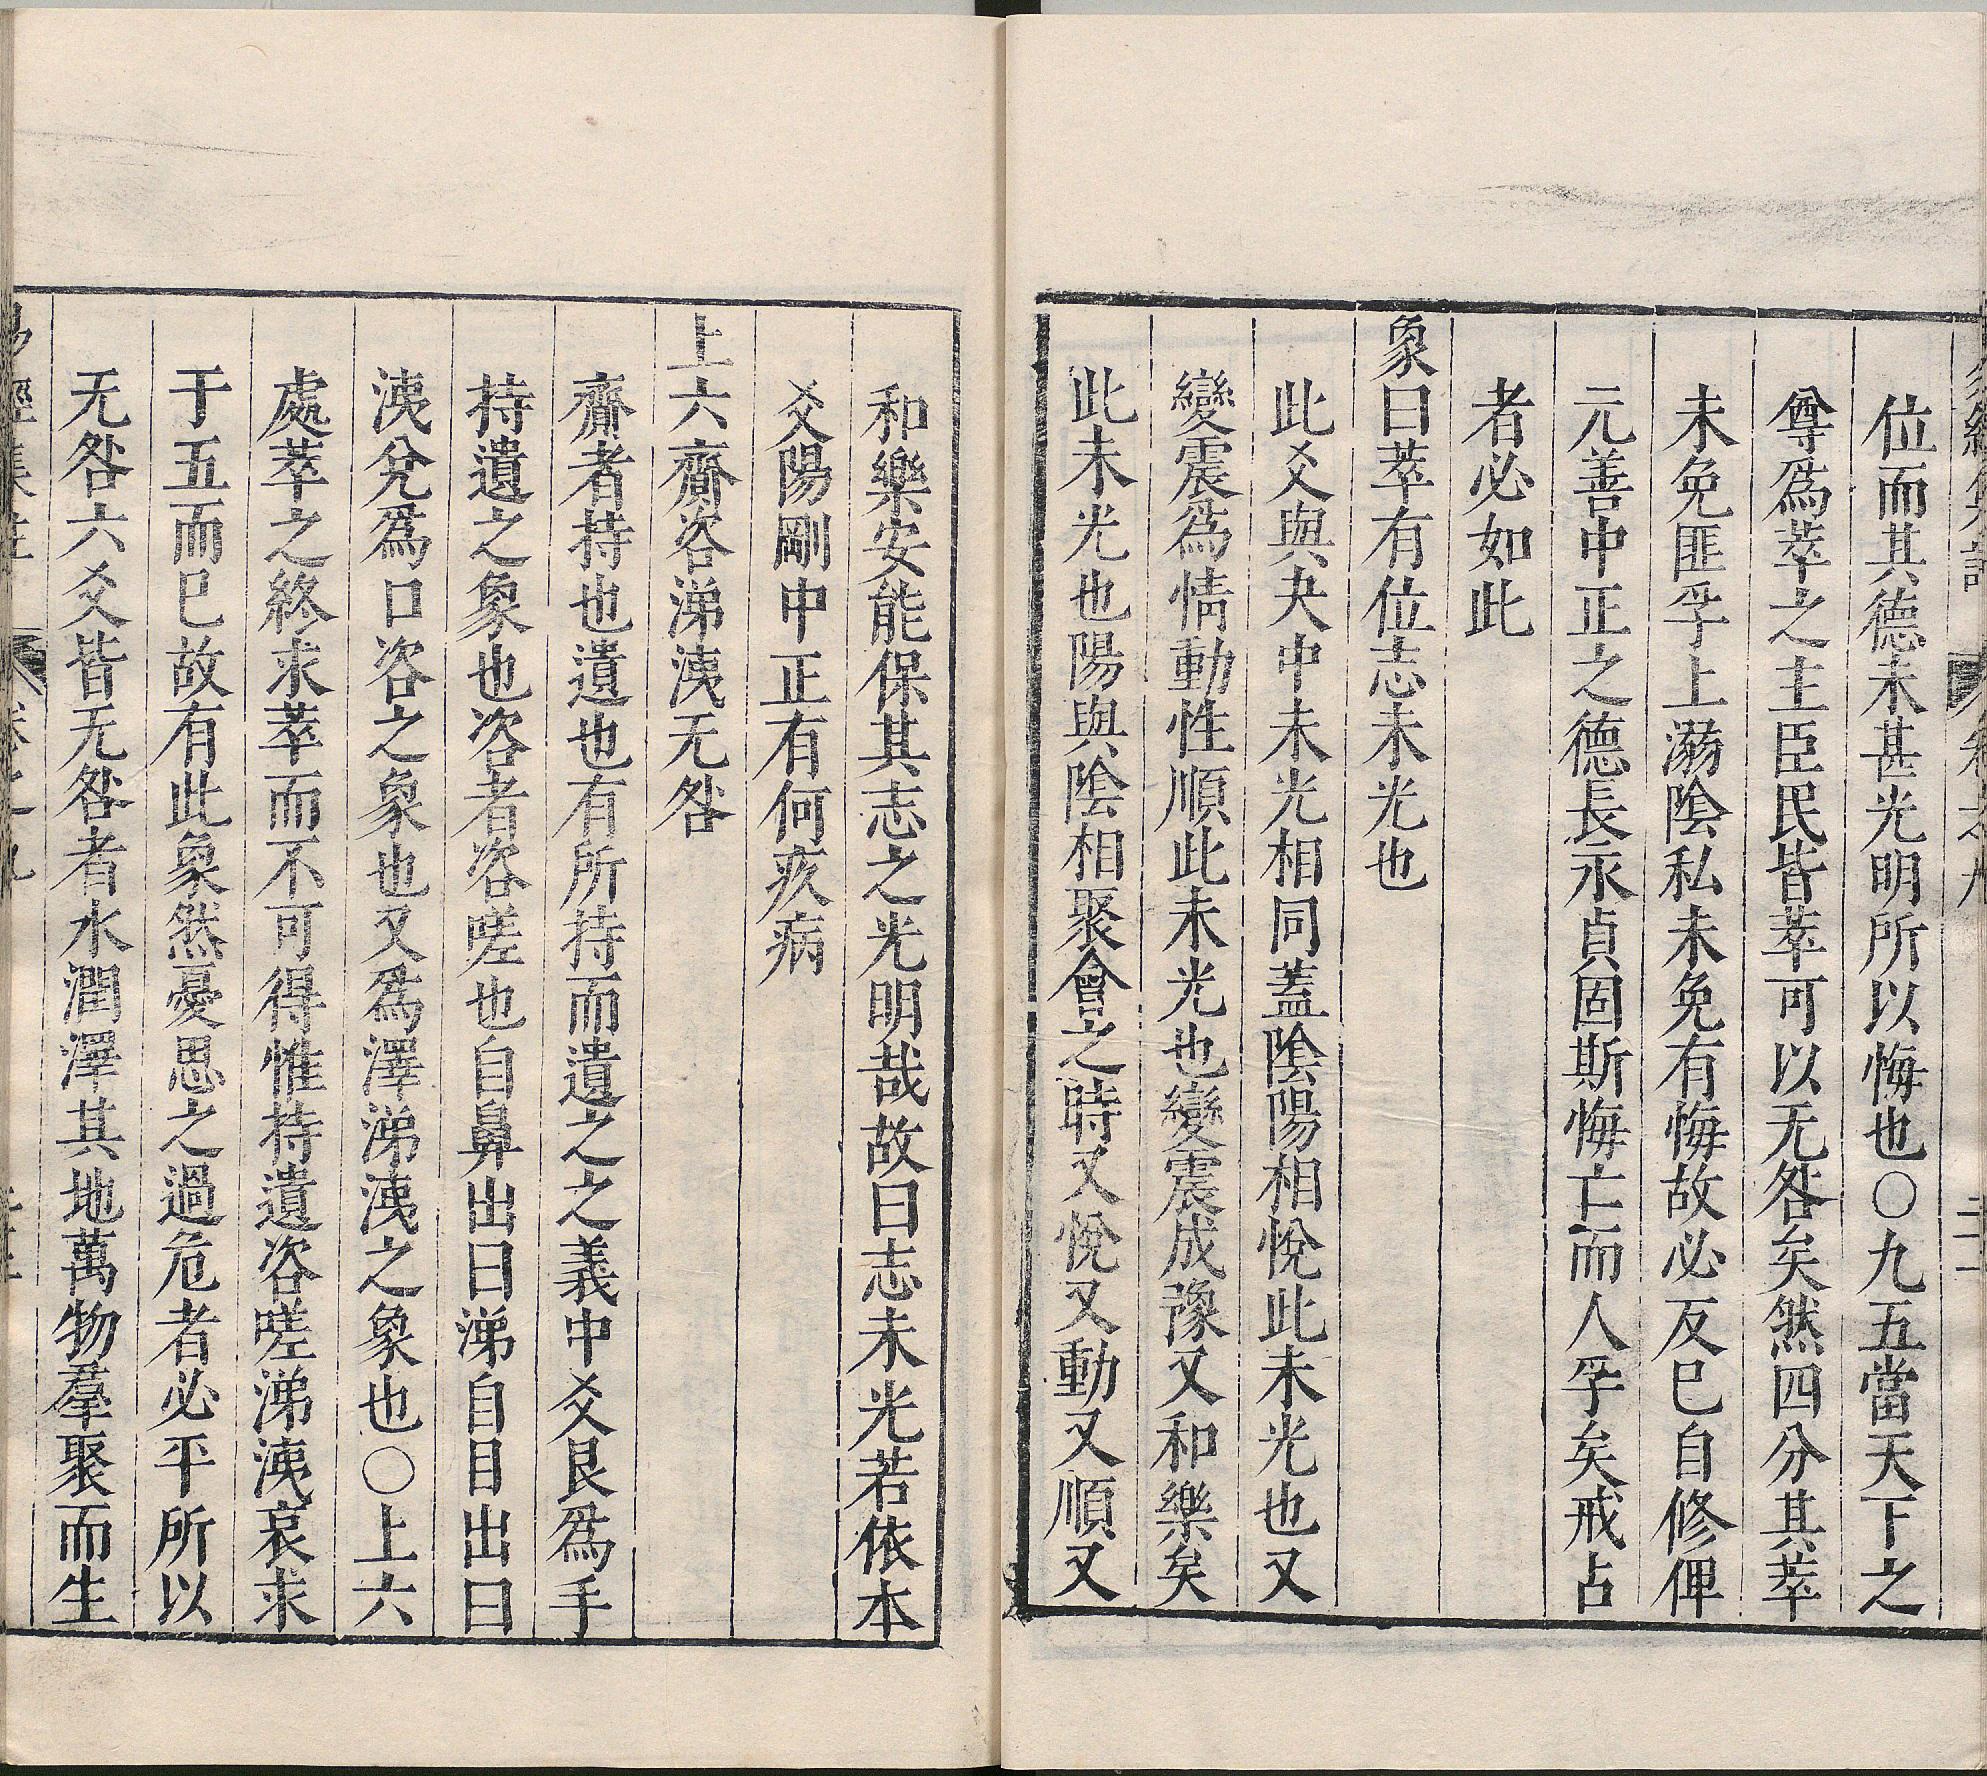 位而其德未甚光明所以悔也〇九五當天下之
尊爲萃之主臣民皆萃可以无咎矣然四分其萃
未免匪孚上溺隂私未免有悔故必反巳自修俾
元善中正之德長永貞固斯悔亡而人孚矣戒占
者必如此
象曰萃有位志未光也
此爻與夬中未光相同蓋隂陽相悅此未光也又
變震爲情動性順此未光也變震成豫又和樂矣
此未光也陽與隂相聚會之時又悅又動又順又
和樂安能保其志之光明哉故曰志未光若依本
爻陽剛中正有何疚病
上六齎咨涕洟无咎
齎者持也遺也有所持而遺之之義中爻艮爲手
持遺之象也咨者咨嗟也自鼻出曰涕自目出曰
洟兌爲口咨之象也又爲澤涕洟之象也〇上六
處萃之終求萃而不可得惟持遺咨嗟涕洟哀求
于五而巳故有此象然憂思之過危者必平所以
无咎六爻皆无咎者水潤澤其地萬物羣聚而生
易經集註 卷之九